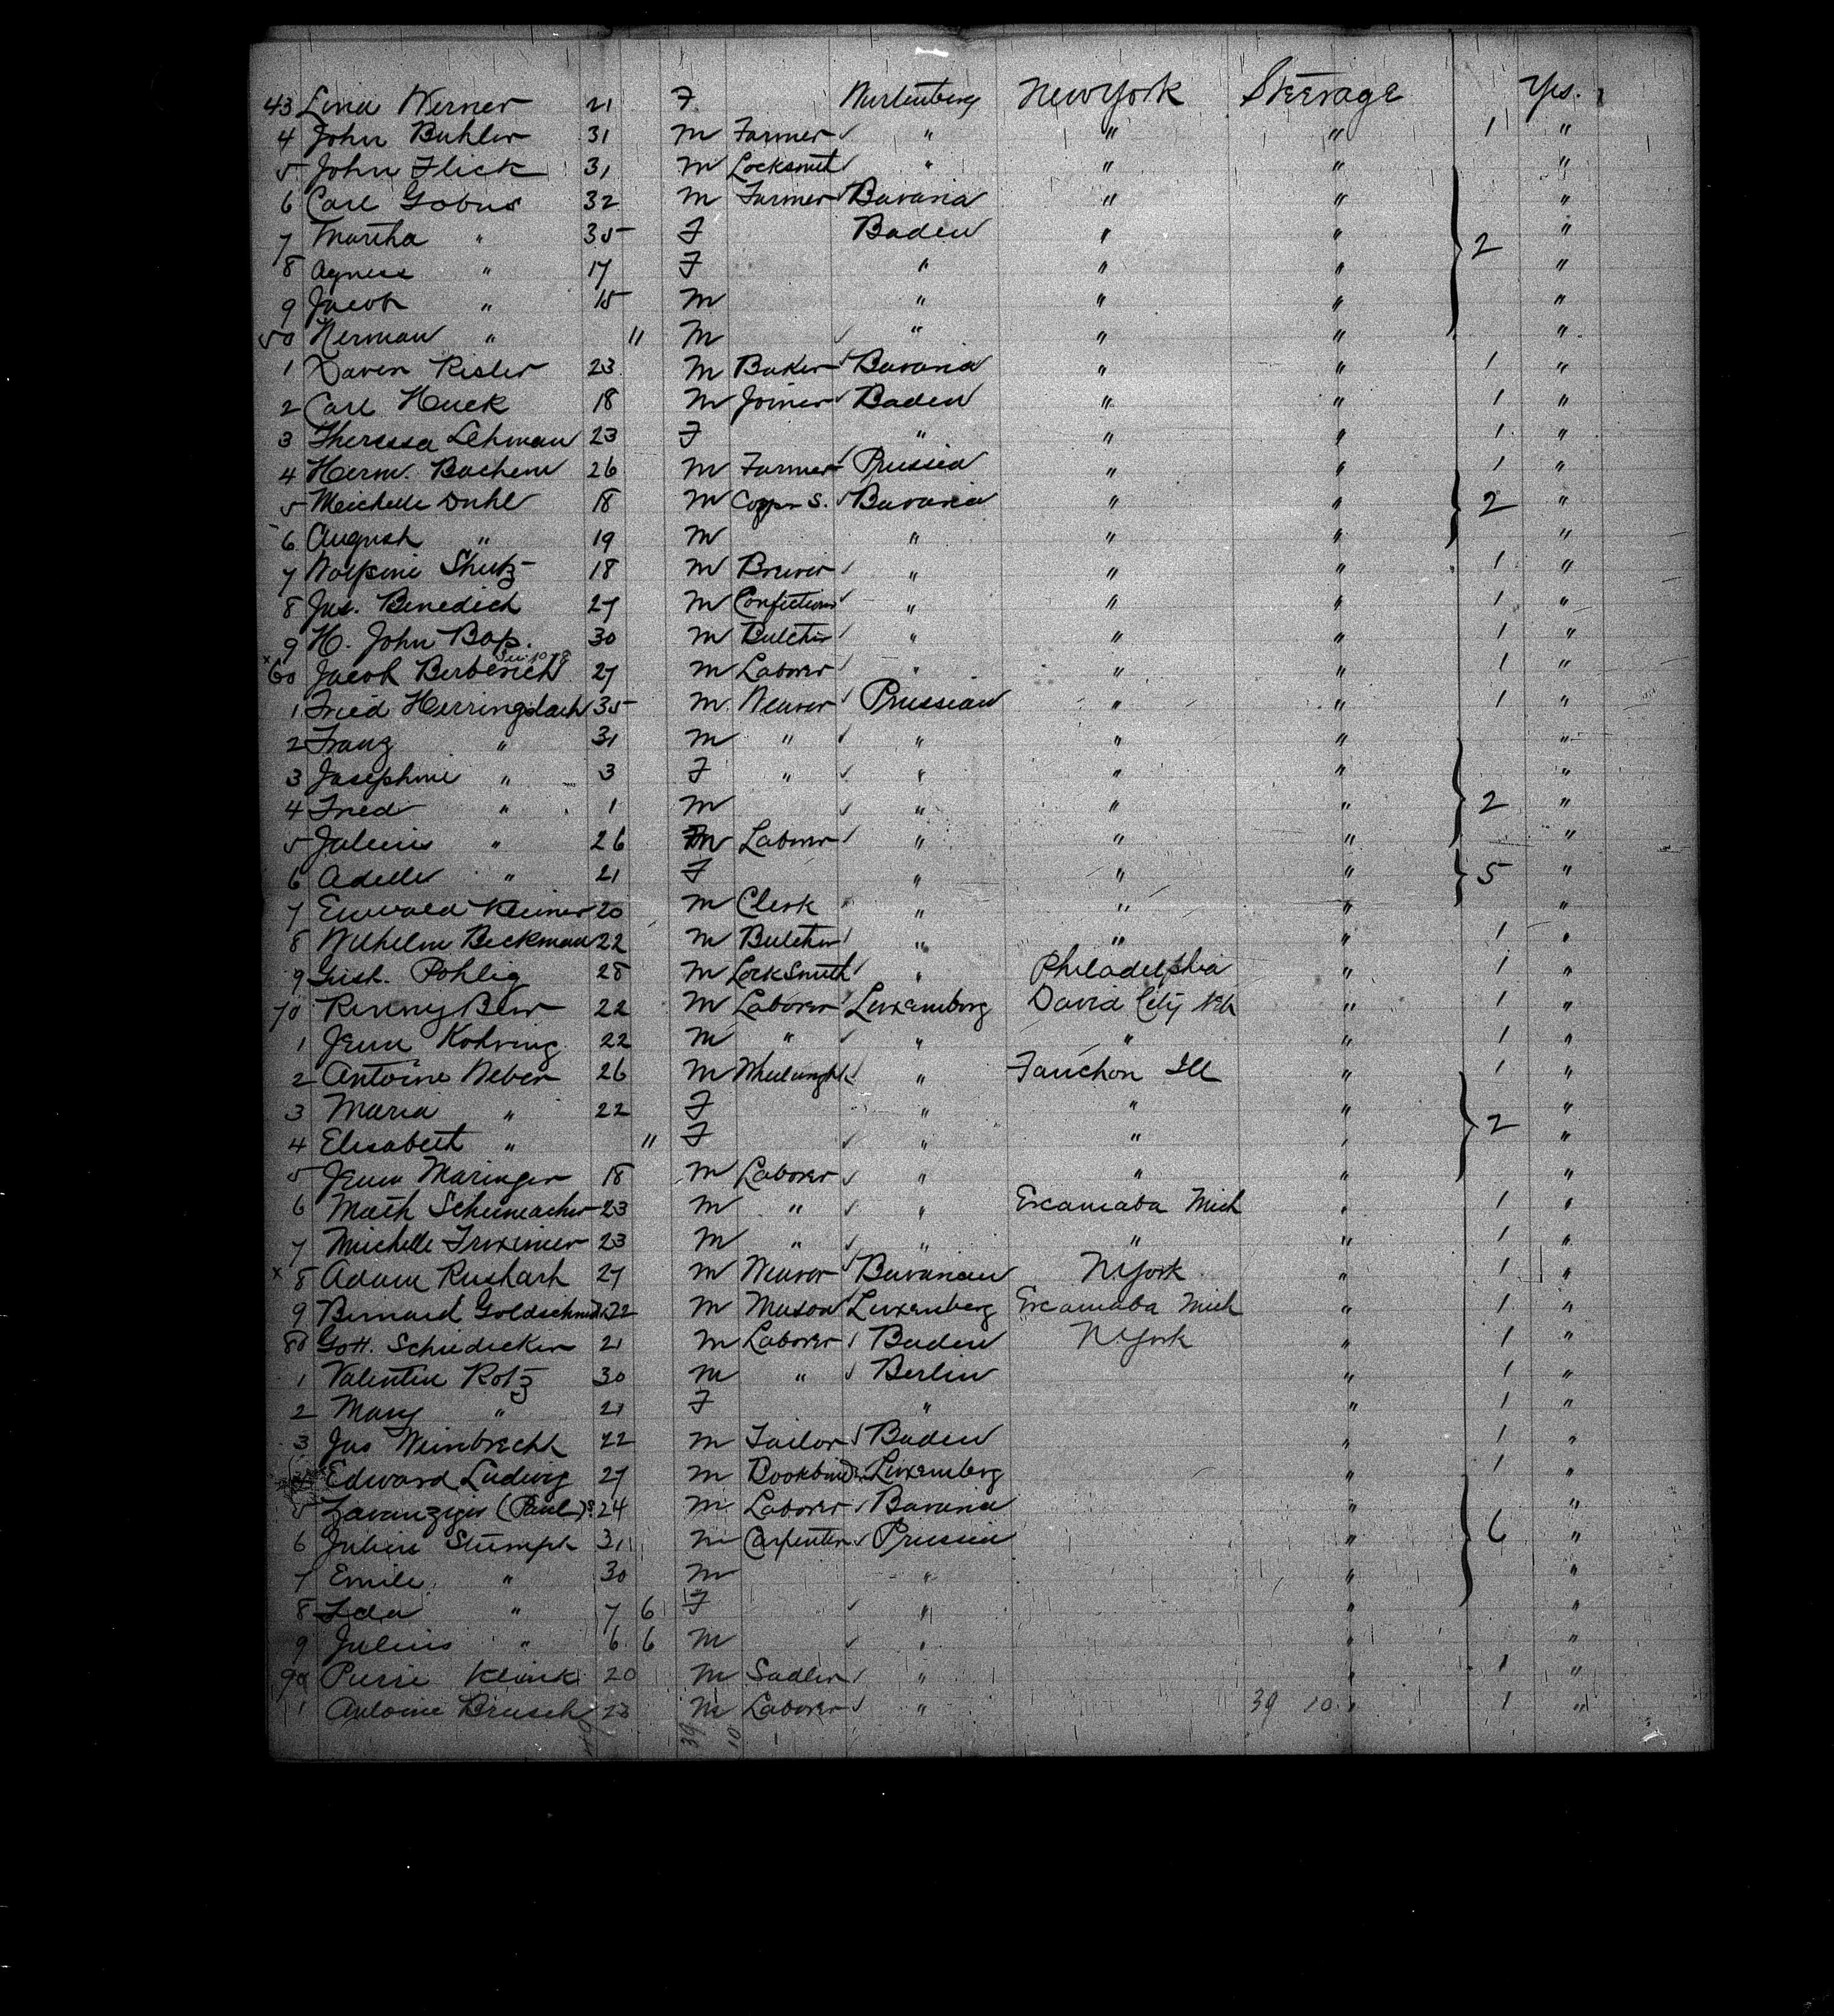 43 Lina Werner 21 F. Wurtenberg New York Steerage Yes.
4 John Buhler 31 M Farmer " " " 1 "
5 John Flick 31 M Locksmit " " " "
6 Carl Gobus 32 M Farmer Bavaria " " "
7 Martha " 35 F Baden " " 2 "
8 Agness " 17 F " " " "
9 Jacob " 15 M " " " "
50 Herman " " M " " " "
1 Risler 23 M Baker Bavaria " " 1 "
2 Carl Huck 18 M Joiner Baden " " 1 "
3 Theressa Lehman 23 F " " " 1 "
4 Herm. Bachem 26 M Farmer Prussia " " 1 "
5 Meichelle Duhl 18 M Copper S. Bavaria " " 2 "
6 August " 19 M " " " "
7 Shutz 18 M Brewer " " " 1 "
8 Jus. Benedich 27 M Confection " " " 1 "
9 H. John Bap. 30 M Butcher " " " 1 "
60 Jacob Berberich 27 M Laborer " " " 1 "
1 Fried Herringslach 35 M. Weaver Prussian " " 1 "
2 Franz " 31 M " " " " "
3 Josephine " 3 F " " " " "
4 Fried " 1 M " " " 2 "
5 Julius " 26 M Laborer " " " "
6 Adelle " 21 F " " " 5 "
7 20 M Clerk " " " "
8 Wilhelm Beckman 22 M Butcher " " " 1 "
9 Gust. Pohlig 28 M LockSmith " Philadelphia " 1 "
70 22 M Laborer Luxemborg David City Neb " 1 "
1 Kohring 22 M " " " " 1 "
2 Antoine Weber 26 M Wheelwright " Fanchon Ill " 1 "
3 Maria " 22 F " " " "
4 Elisabeth " " F " " " 2 "
5 Maringer 18 M Laborer " " " "
6 Math Schumacher 23 M " " Escanaba Mich " 1 "
7 Michelle 23 M " " " " 1 "
x 8 Adam Rushart 27 M Weaver Bavarian N.York " 1 "
9 Bernard Goldschmidt 22 M Mason Luxemberg Escanaba Mich " 1 "
80 Gott. Schiedecker 21 M Laborer Baden N.York " 1 "
1 Valentin Rotz 30 M " Berlin " 1 "
2 Mary " 21 F " " 1 "
3 Jus Weinbrecht 22 M Tailor Baden " 1 "
Edward Ludwig 27 M Bookbinder Luxemberg " 1 "
5 (Paul) 24 M Laborer Bavaria " "
6 Julius Stumph 31 M Carpenter Prussia " 6 "
7 Emile " 30 M " " "
8 Ida " 7 6 F " " "
9 Julius " 6 6 M " " "
90 Pierre Klink 20 M Sadler " " 1 "
1 Antoine Brusch 23 M Laborer " 39 10 " 1 "
39 10